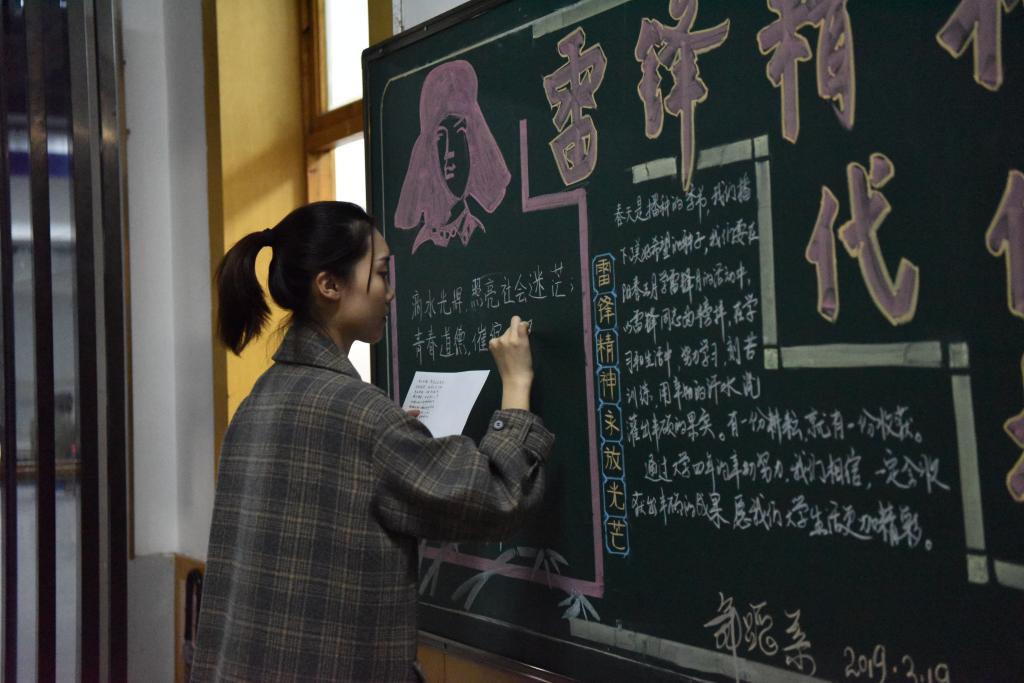 雷锋精神
代
滴水光辉,照亮社会迷茫;
青春道德,催
雷锋精神永放光芒
春天是播种的季节,我们播
下美好希望的种子,我们要在
阳春三月学雷锋月的活动中,
以雷锋同志为榜样,在学
习和生活中,努力学习,刻苦
训练,用辛勤的汗水浇
灌出丰硕的果实。有一份耕耘,就有一份收获。
通过大学四年的辛勤努力,我们相信,一定会收
获出丰硕的成果,愿我们大学生活更加精彩。
2019.3.19